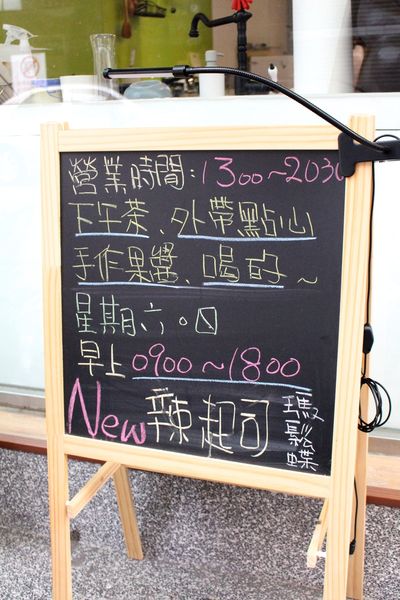 營業時間:1300~2030
下午茶、外帶點心
手作果醬、喝的~
星期六.日
早上 0900~1800
New 辣起司
瑪鬆蝶